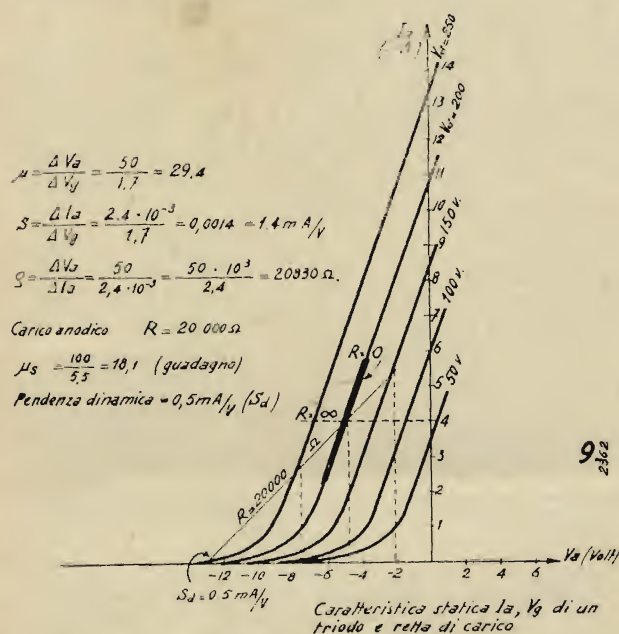 Ia
Va=250
Va=200
150 v.
100 v.
50 v.
14
13
12
11
10
9
8
7
6
5
4
3
2
1
μ = ΔVa / ΔVg = 50 / 1,7 = 29,4
S = ΔIa / ΔVg = 2,4 · 10⁻³ / 1,7 = 0,0014 = 1.4 mA/V
ρ = ΔVa / ΔIa = 50 / 2,4·10⁻³ = 50 · 10³ / 2,4 = 20830 Ω.
Carico anodico R = 20 000 Ω
μs = 100 / 5,5 = 18,1 (guadagno)
Pendenza dinamica = 0,5 mA/V (Sd)
R=0
R=∞
R=20000 Ω
9
2362
-12 -10 -8 -6 -4 -2 2 4 6
Va (Volt)
Sd=0.5 mA/V
Caratteristica statica Ia, Vg di un
triodo e retta di carico